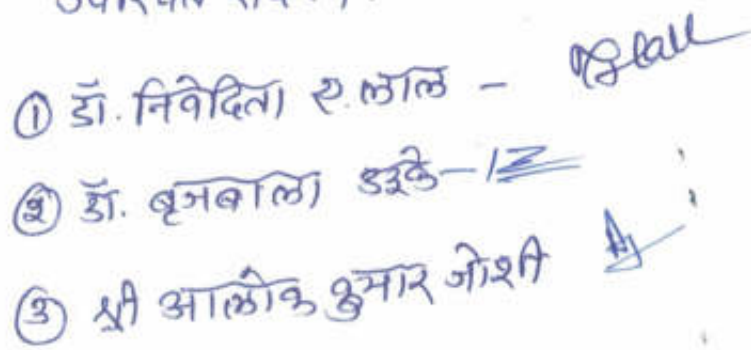 ① डॉ. निवेदिता ए. लाल -
② डॉ. बृजबाला उइके -
③ श्री आलोक कुमार जोशी